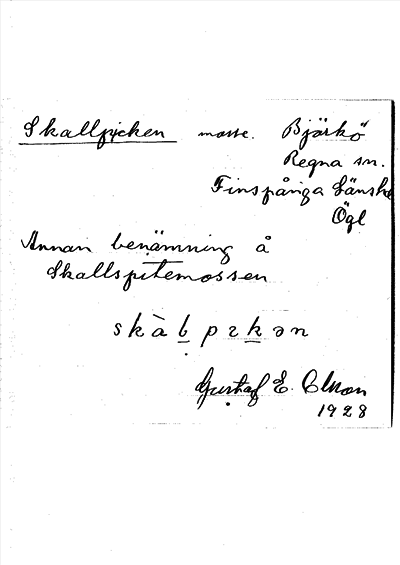 Skallpicken mosse. Björkö
Regna sn.
Finspånga länshd
Ögl
Annan benämning å
Skallspitemossen
Gustaf E. Olson
1928